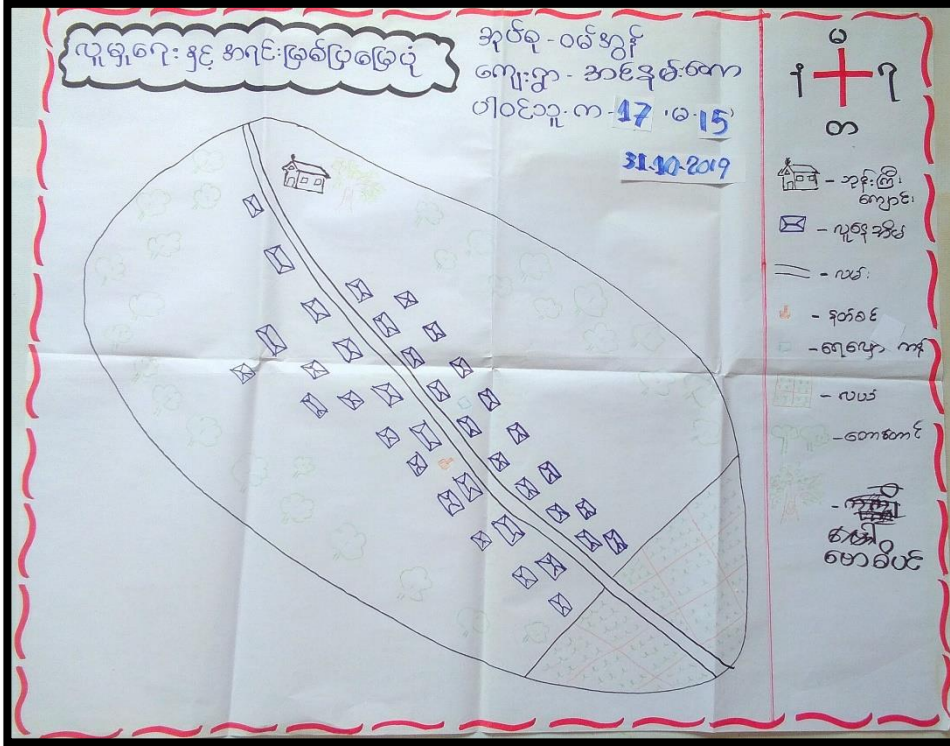 လူမှုရေး နှင့် အရင်းမြစ်ပြမြေပုံ
အုပ်စု - ဝမ်အွန်
ကျေးရွာ - အင်နမ်းတော
ပါဝင်သူ - က - 17 ၊ မ - 15
31-10-2019
မ
န ရ
တ
- ဘုန်းကြီး
ကျောင်း
- လူနေအိမ်
- လမ်း
- နတ်စင်
- ရေလှော ကန်
- လယ်
- တောတောင်
- ဗောဓိပင်